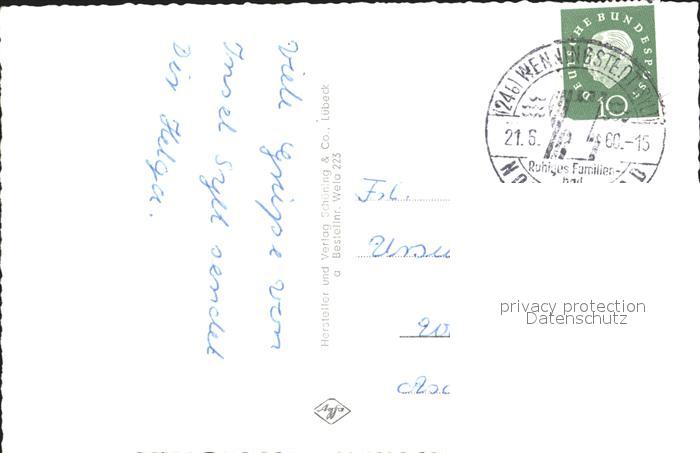 Viele Grüße von
Insel Sylt sendet
Dir Helga.
Hersteller und Verlag Schöning & Co., Lübeck
a Bestellnr. Wela 223
Frl.
Ursu
DEUTSCHE BUNDESPOST
10
(24b) WENNINGSTEDT
21.6. 60.-15
Ruhiges Familien-
bad
privacy protection
Datenschutz
Agfa